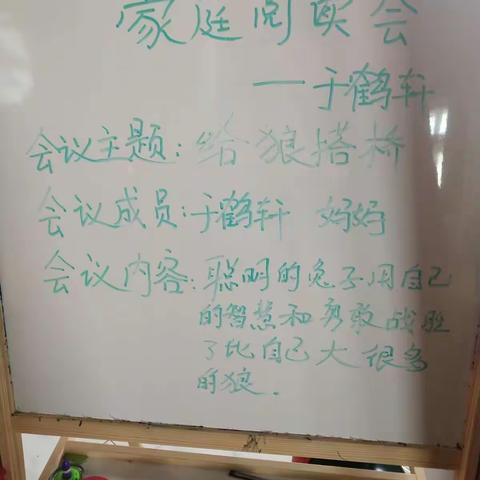 家庭阅读会
——于鹤轩
会议主题：给狼搭桥
会议成员：于鹤轩 妈妈
会议内容：聪明的兔子用自己
的智慧和勇敢战胜
了比自己大很多
的狼.